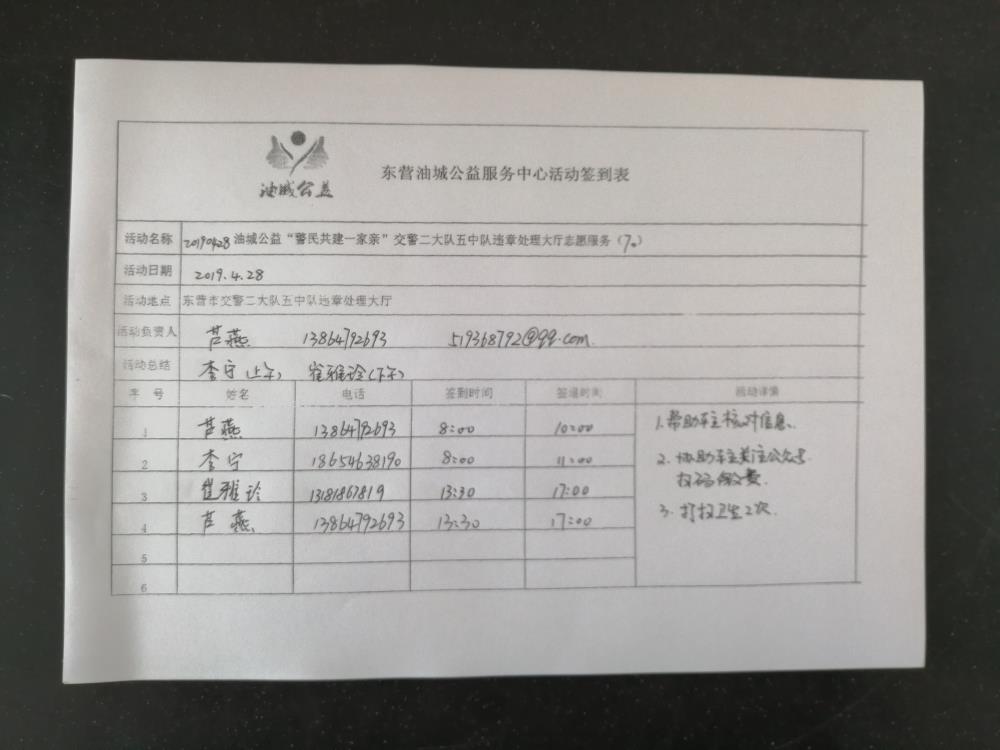 油城公益
东营油城公益服务中心活动签到表
活动名称 20190428油城公益“警民共建一家亲”交警二大队五中队违章处理大厅志愿服务(7。)
活动日期 2019.4.28
活动地点 东营市交警二大队五中队违章处理大厅
活动负责人 芦燕 13864792693 519368792@qq.com.
活动总结 李宁(上午) 崔雅玲(下午)
序号 姓名 电话 签到时间 签退时间 活动详情
1 芦燕 13864792693 8:00 10:00 1.帮助车主核对信息.
2 李宁 18654638190 8:00 11:00 2.协助车主关注公众号.
扫码缴费.
3 崔雅玲 13181867819 13:30 17:00
4 芦燕 13864792693 13:30 17:00 3.打扫卫生2次.
5
6